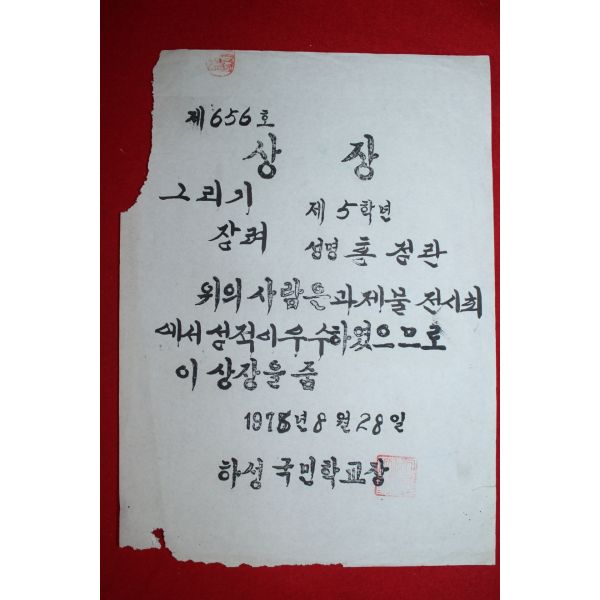 제656호
상 장
그리기
제 5학년
장려
성명 홍점관
위의 사람은 과제물 전시회
에서 성적이우수하였으므로
이 상장을 줌
1978년 8월 28일
하성 국민학교장